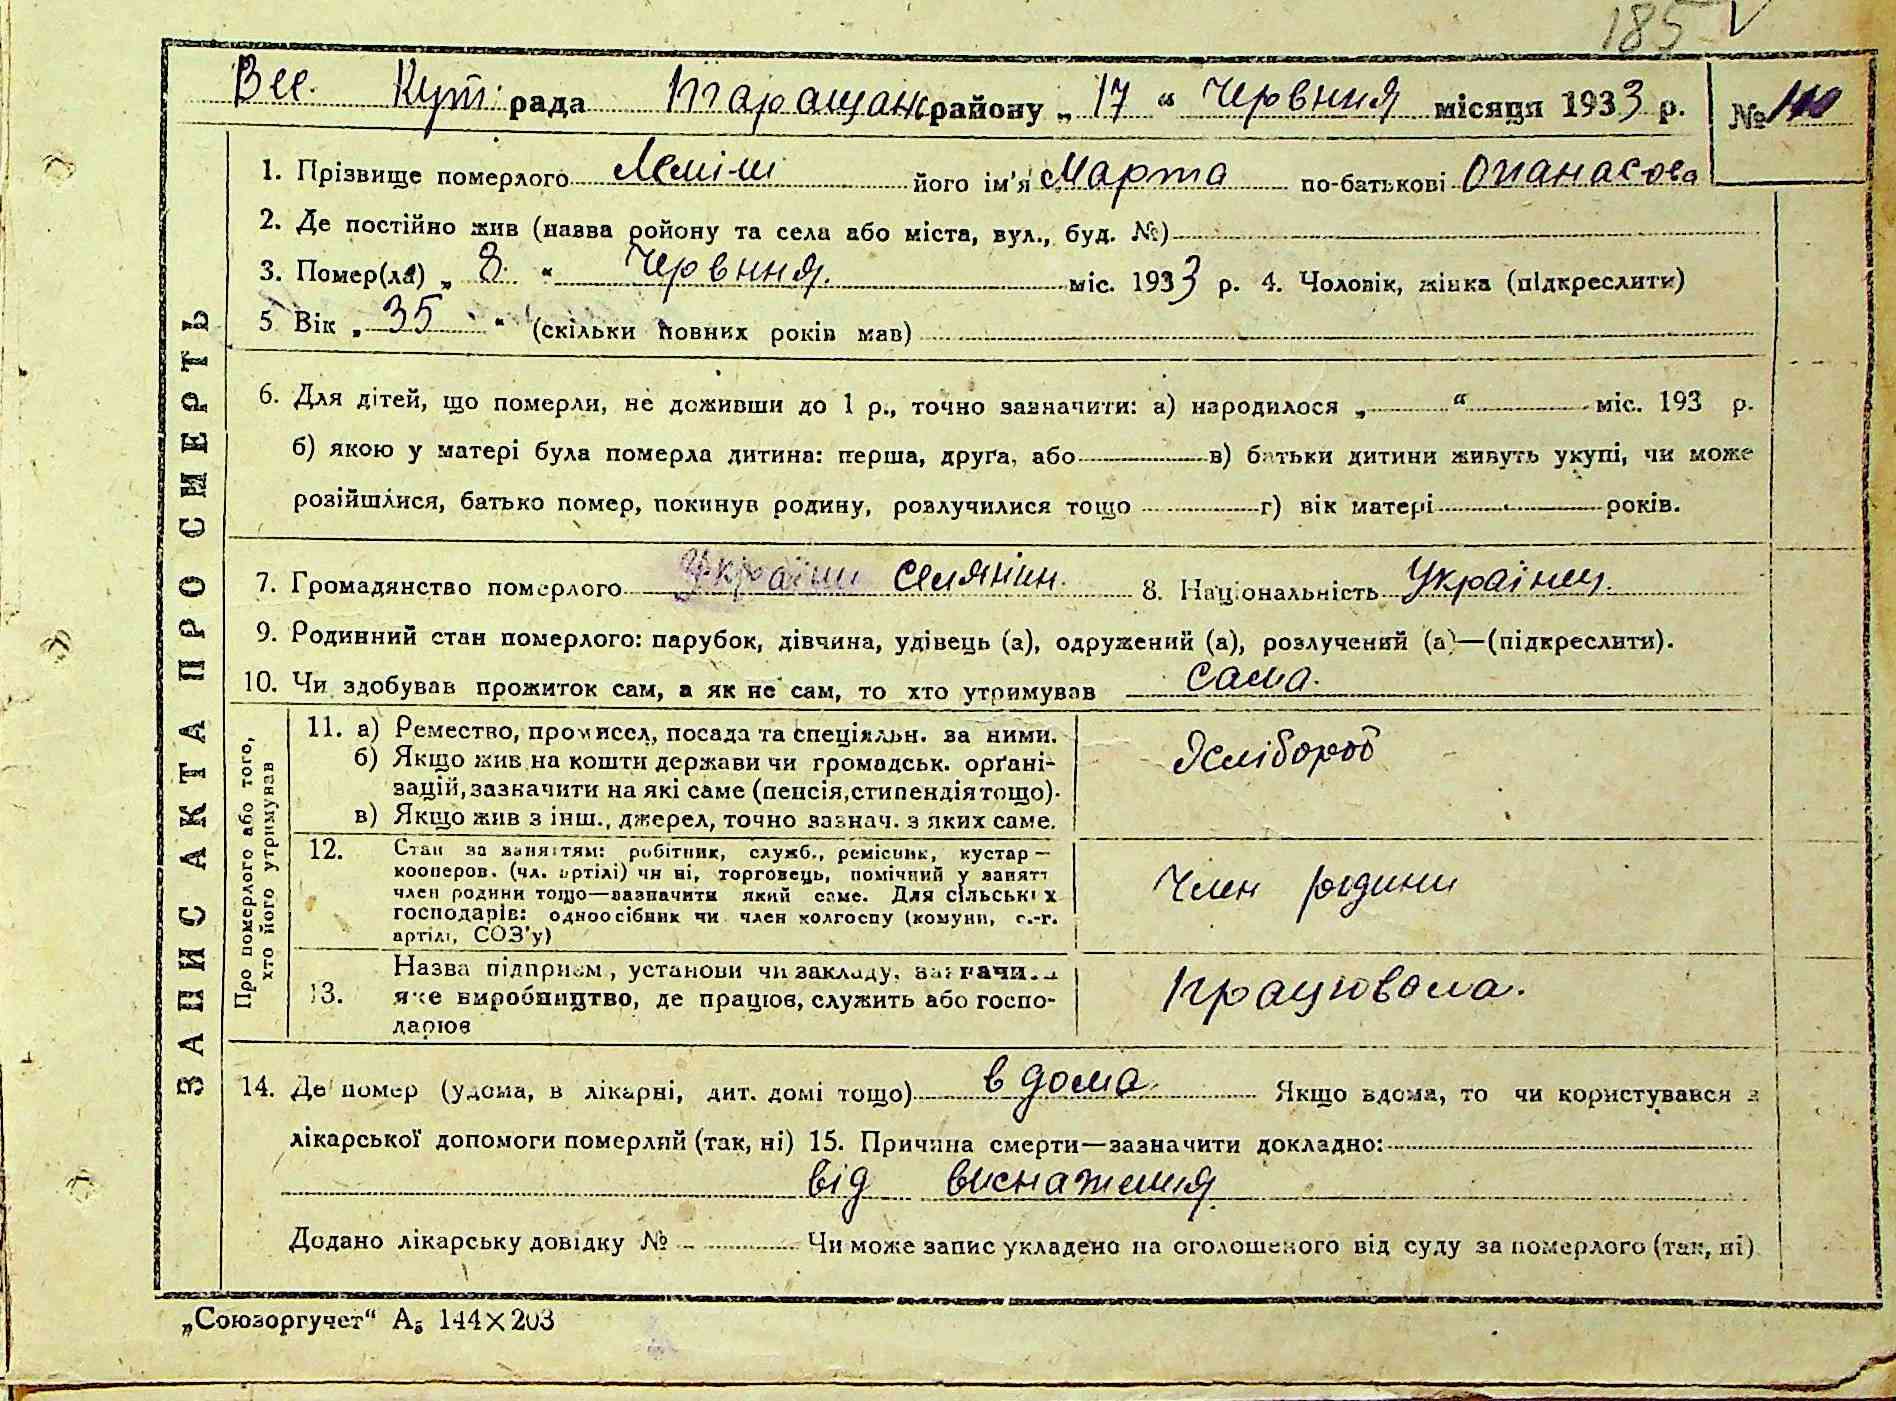 185 V
Вес. Кут. рада Таращан. району „ 17 “ Червня місяця 1933 р. №
1. Прізвище померлого його ім'я Марта по-батькові Опанасова
2. Де постійно жив (назва ройону та села або міста, вул., буд. №)
3. Помер(ла) „ 8. “ Червння. міс. 1933 р. 4. Чоловік, жінка (підкреслити)
5 Вік „ 35 “ (скільки повних років мав)
6. Для дітей, що померли, не доживши до 1 р., точно зазначити: а) народилося „ “ міс. 193 р.
б) якою у матері була померла дитина: перша, друга, або в) батьки дитини живуть укупі, чи може
розійшлися, батько помер, покинув родину, розлучилися тощо г) вік матері років.
7. Громадянство померлого України селянин. 8. Національність Українец.
9. Родинний стан померлого: парубок, дівчина, удівець (а), одружений (а), розлучений (а)—(підкреслити).
10. Чи здобував прожиток сам, а як не сам, то хто утримував сама.
ЗАПИС АКТА ПРО СМЕРТЬ
Про померлого або того,
хто його утримував
11. а) Ремество, промисел, посада та спеціяльн. за ними.
б) Якщо жив на кошти держави чи громадськ. орґані-
зацій, зазначити на які саме (пенсія, стипендія тощо).
в) Якщо жив з інш., джерел, точно зазнач. з яких саме.
Хлібороб
12. Стан за заняттям: робітник, служб., ремісник, кустар—
кооперов. (чл. артілі) чи ні, торговець, помічний у занятт
член родини тощо—зазначити який саме. Для сільських
господарів: одноосібник чи член колгоспу (комуни, с.-г.
артілі, СОЗ'у)
Член родини
13. Назва підприєм, установи чи закладу, зазначи
яке виробництво, де працює, служить або госпо-
дарює
Працювала.
14. Де помер (удома, в лікарні, дит. домі тощо) в дома. Якщо вдома, то чи користувався з
лікарської допомоги померлий (так, ні) 15. Причина смерти—зазначити докладно:
від виснаження.
Додано лікарську довідку № Чи може запис укладено на оголошеного від суду за померлого (так, ні)
„Союзоргучет“ А₅ 144×203